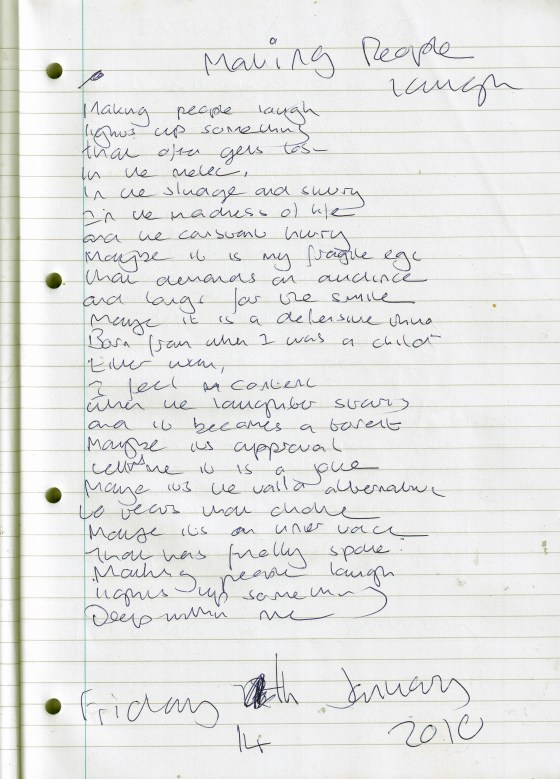 Making People
laugh
Making people laugh
lights up something
that often gets lost
in the melee,
in the sludge and slurry
in the madness of life
and the constant hurry
Maybe it is my fragile ego
that demands an audience
and longs for the smile
Maybe it is a defensive thing
Born from when I was a child
Either way,
I feel content
when the laughter starts
and it becomes a torrent
Maybe its approval
tell me it is a joke
Maybe its the valid alternative
to tears that choke
Maybe its an inner voice
that has finally spoke.
Making people laugh
lights up something
Deep within me
Friday th January
14 2010